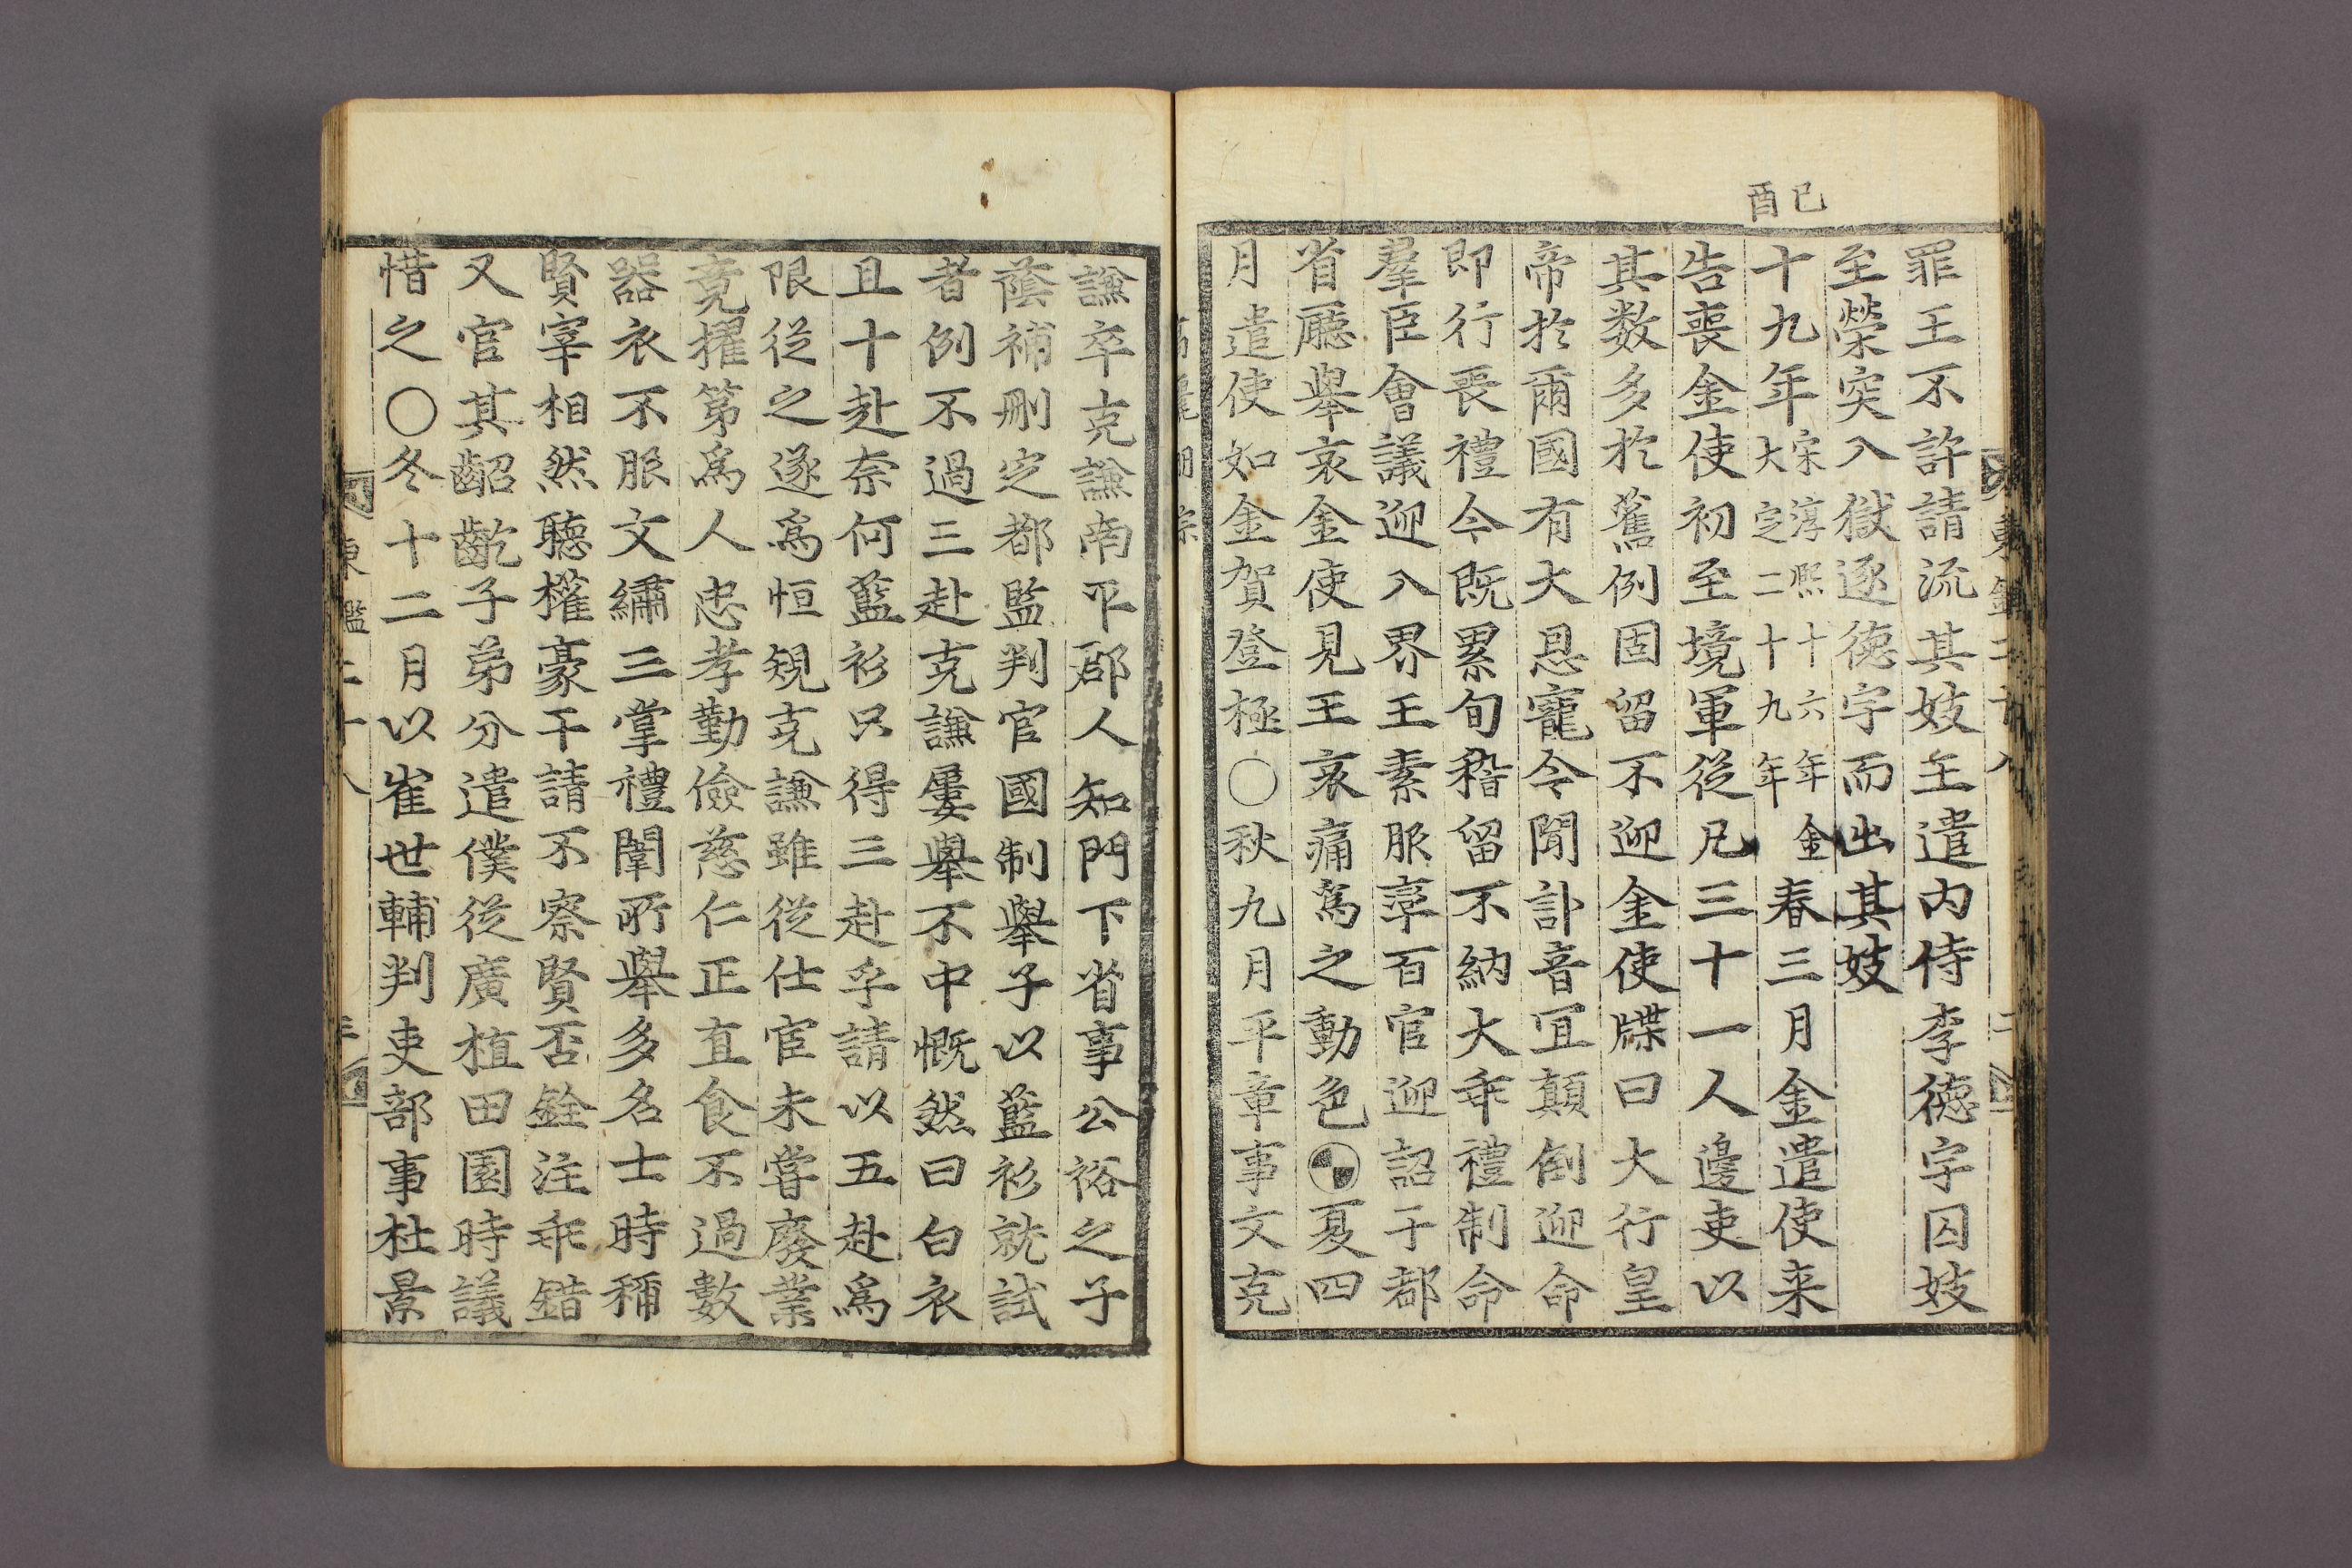 己酉
罪王不許請流其妓王遣內侍李德宇囚妓
至榮突入獄逐德宇而出其妓
十九年宋淳熙十六年金大定二十九年春三月金遣使来
告喪金使初至境軍從凡三十一人邊吏以
其数多於舊例固留不迎金使牒曰大行皇
帝於爾國有大恩寵今聞訃音冝顛倒迎命
即行喪禮今既累旬稽留不納大乖禮制命
羣臣會議迎入界王素服率百官迎詔于都
省廳舉哀金使見王哀痛爲之動色夏四
月遣使如金賀登極〇秋九月平章事文克
謙卒克謙南平郡人知門下省事公裕之子
蔭補刪定都監判官國制舉子以藍衫就試
者例不過三赴克謙屢舉不中慨然曰白衣
且十赴奈何藍衫只得三赴乎請以五赴爲
限從之遂爲恒規克謙雖從仕宦未嘗廢業
竟擢第爲人忠孝勤儉慈仁正直食不過數
器衣不服文繡三掌禮闈所舉多名士時稱
賢宰相然聽權豪干請不察賢否銓注乖錯
又官其齠齔子弟分遣僕從廣植田園時議
惜之〇冬十二月以崔世輔判吏部事杜景